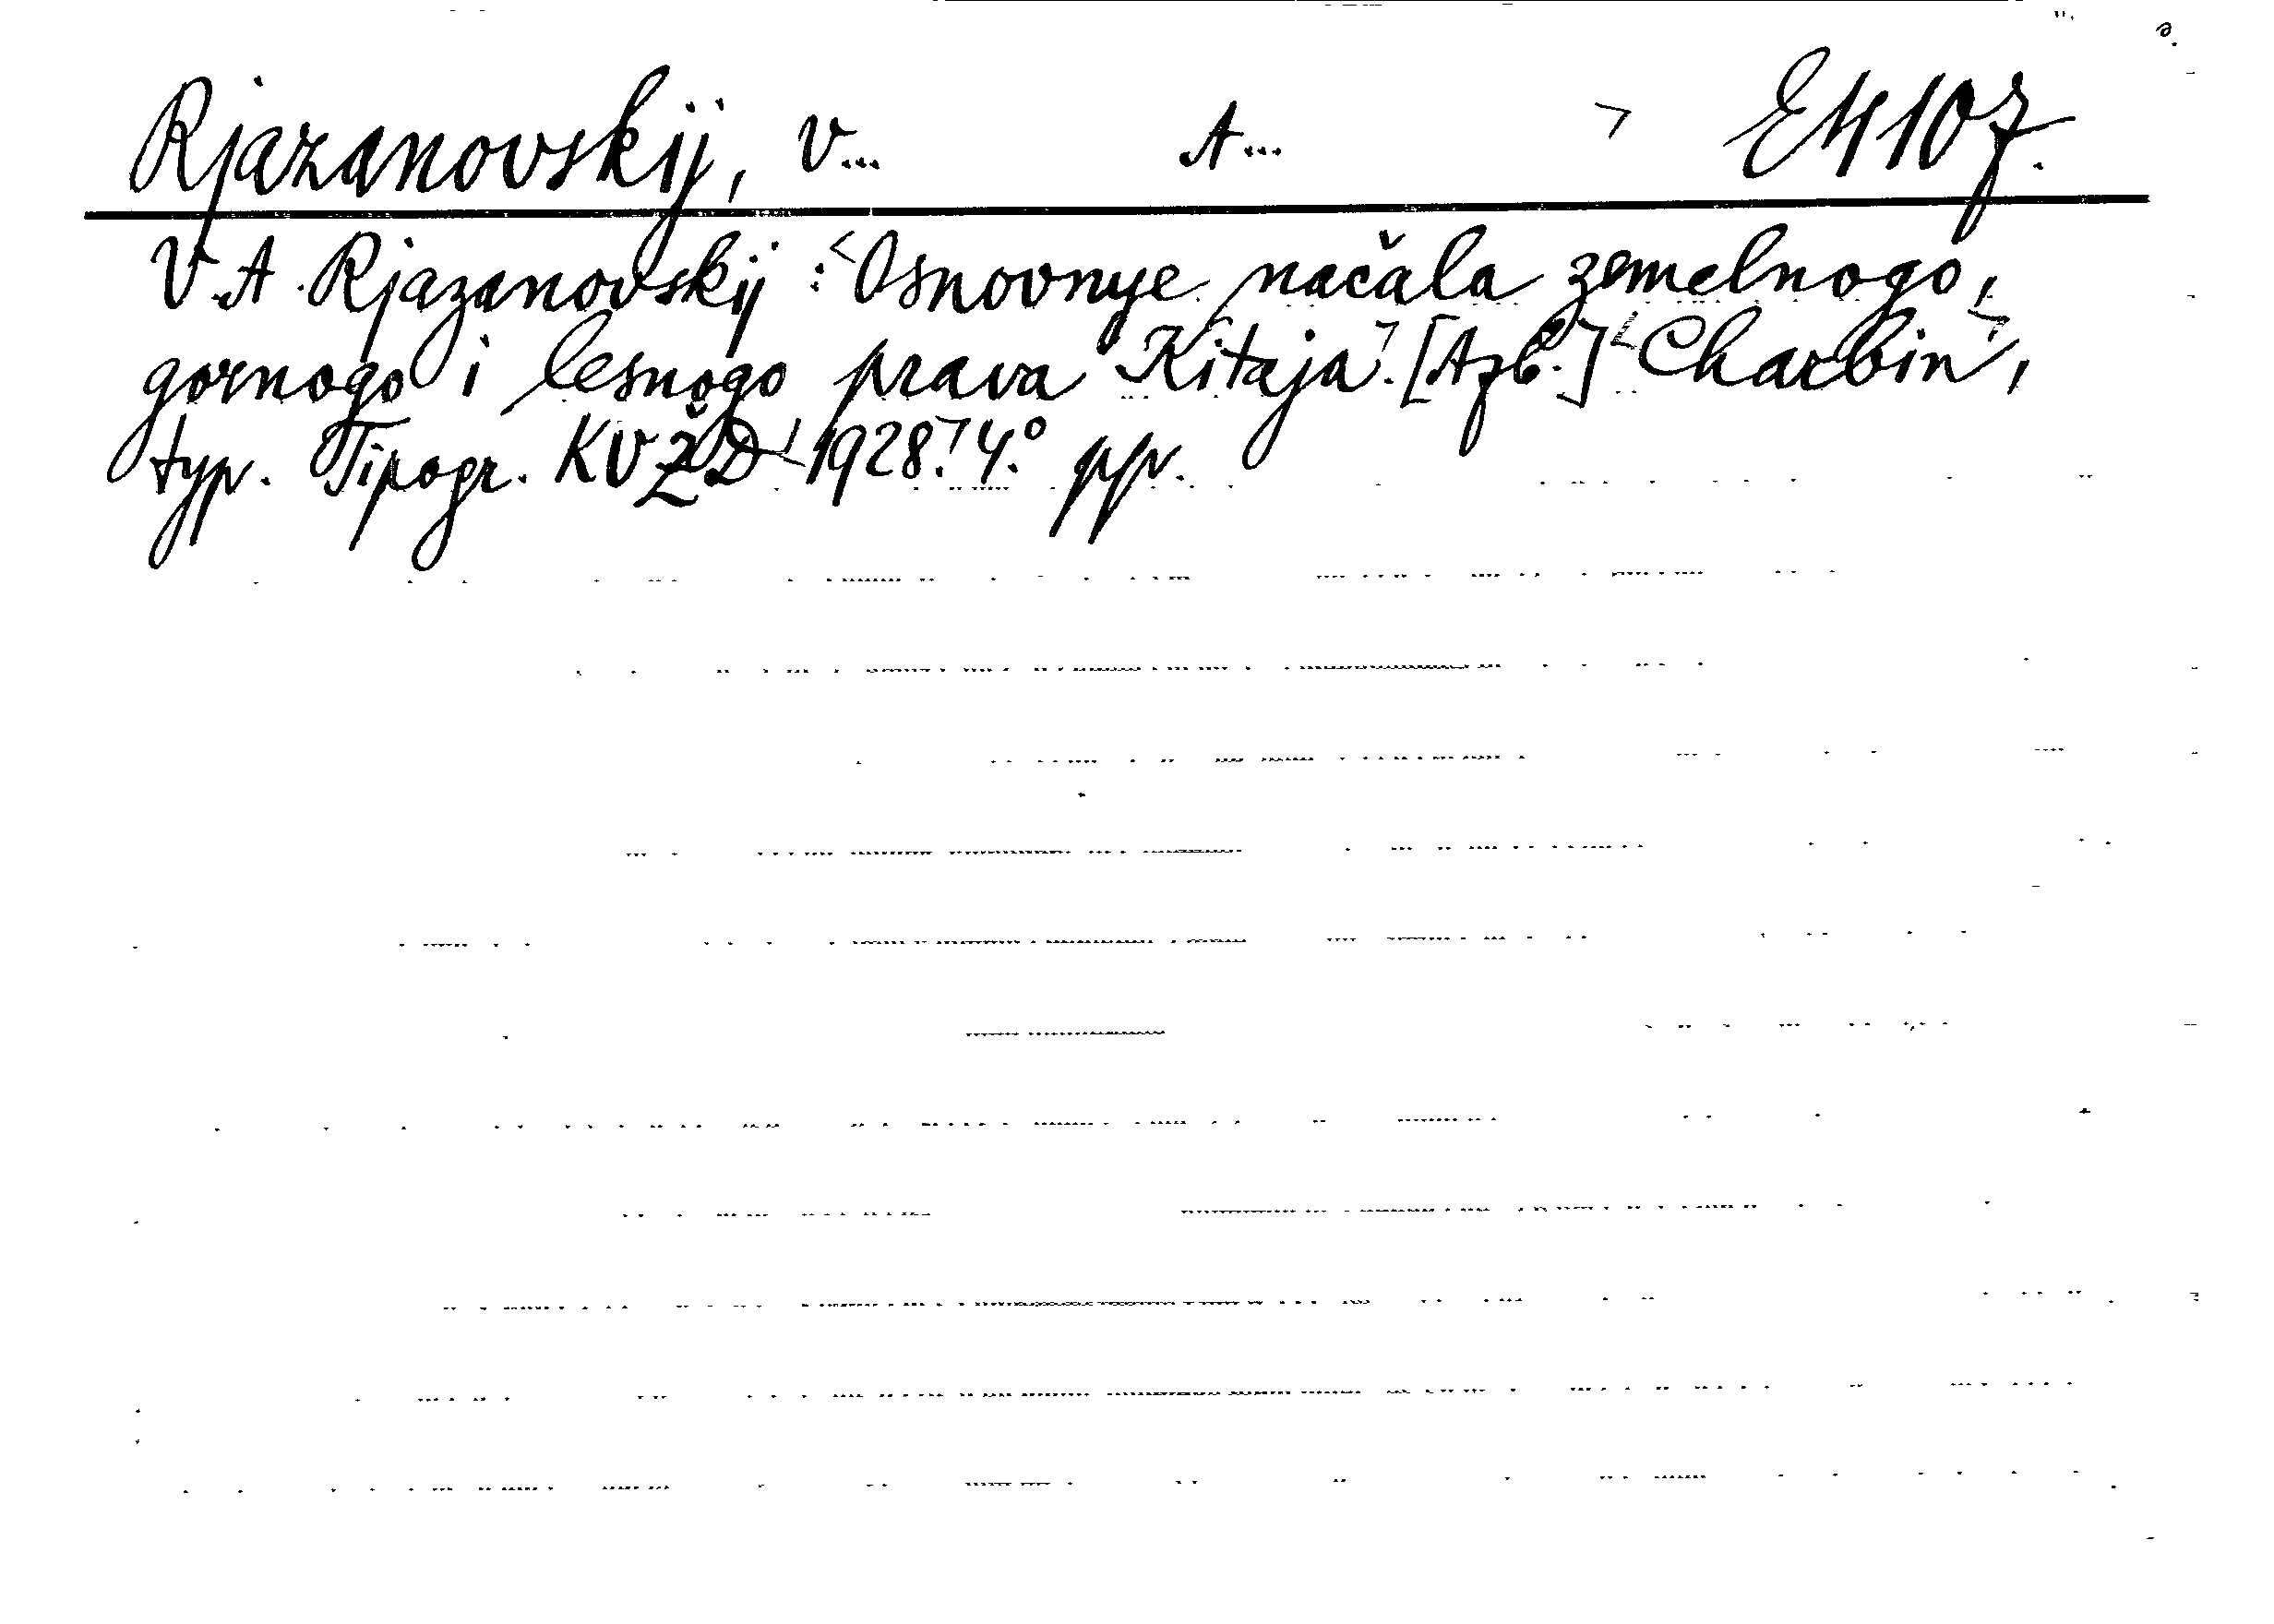 Rjazanovskij, V... A... E4107.
V. A. Rjazanovskij: Osnovnye načala zemelnogo,
gornogo i lesnogo prava Kitaja. [Azb.] Charbin,
typ. Tipogr. KVŽD 1928. 4.° pp.